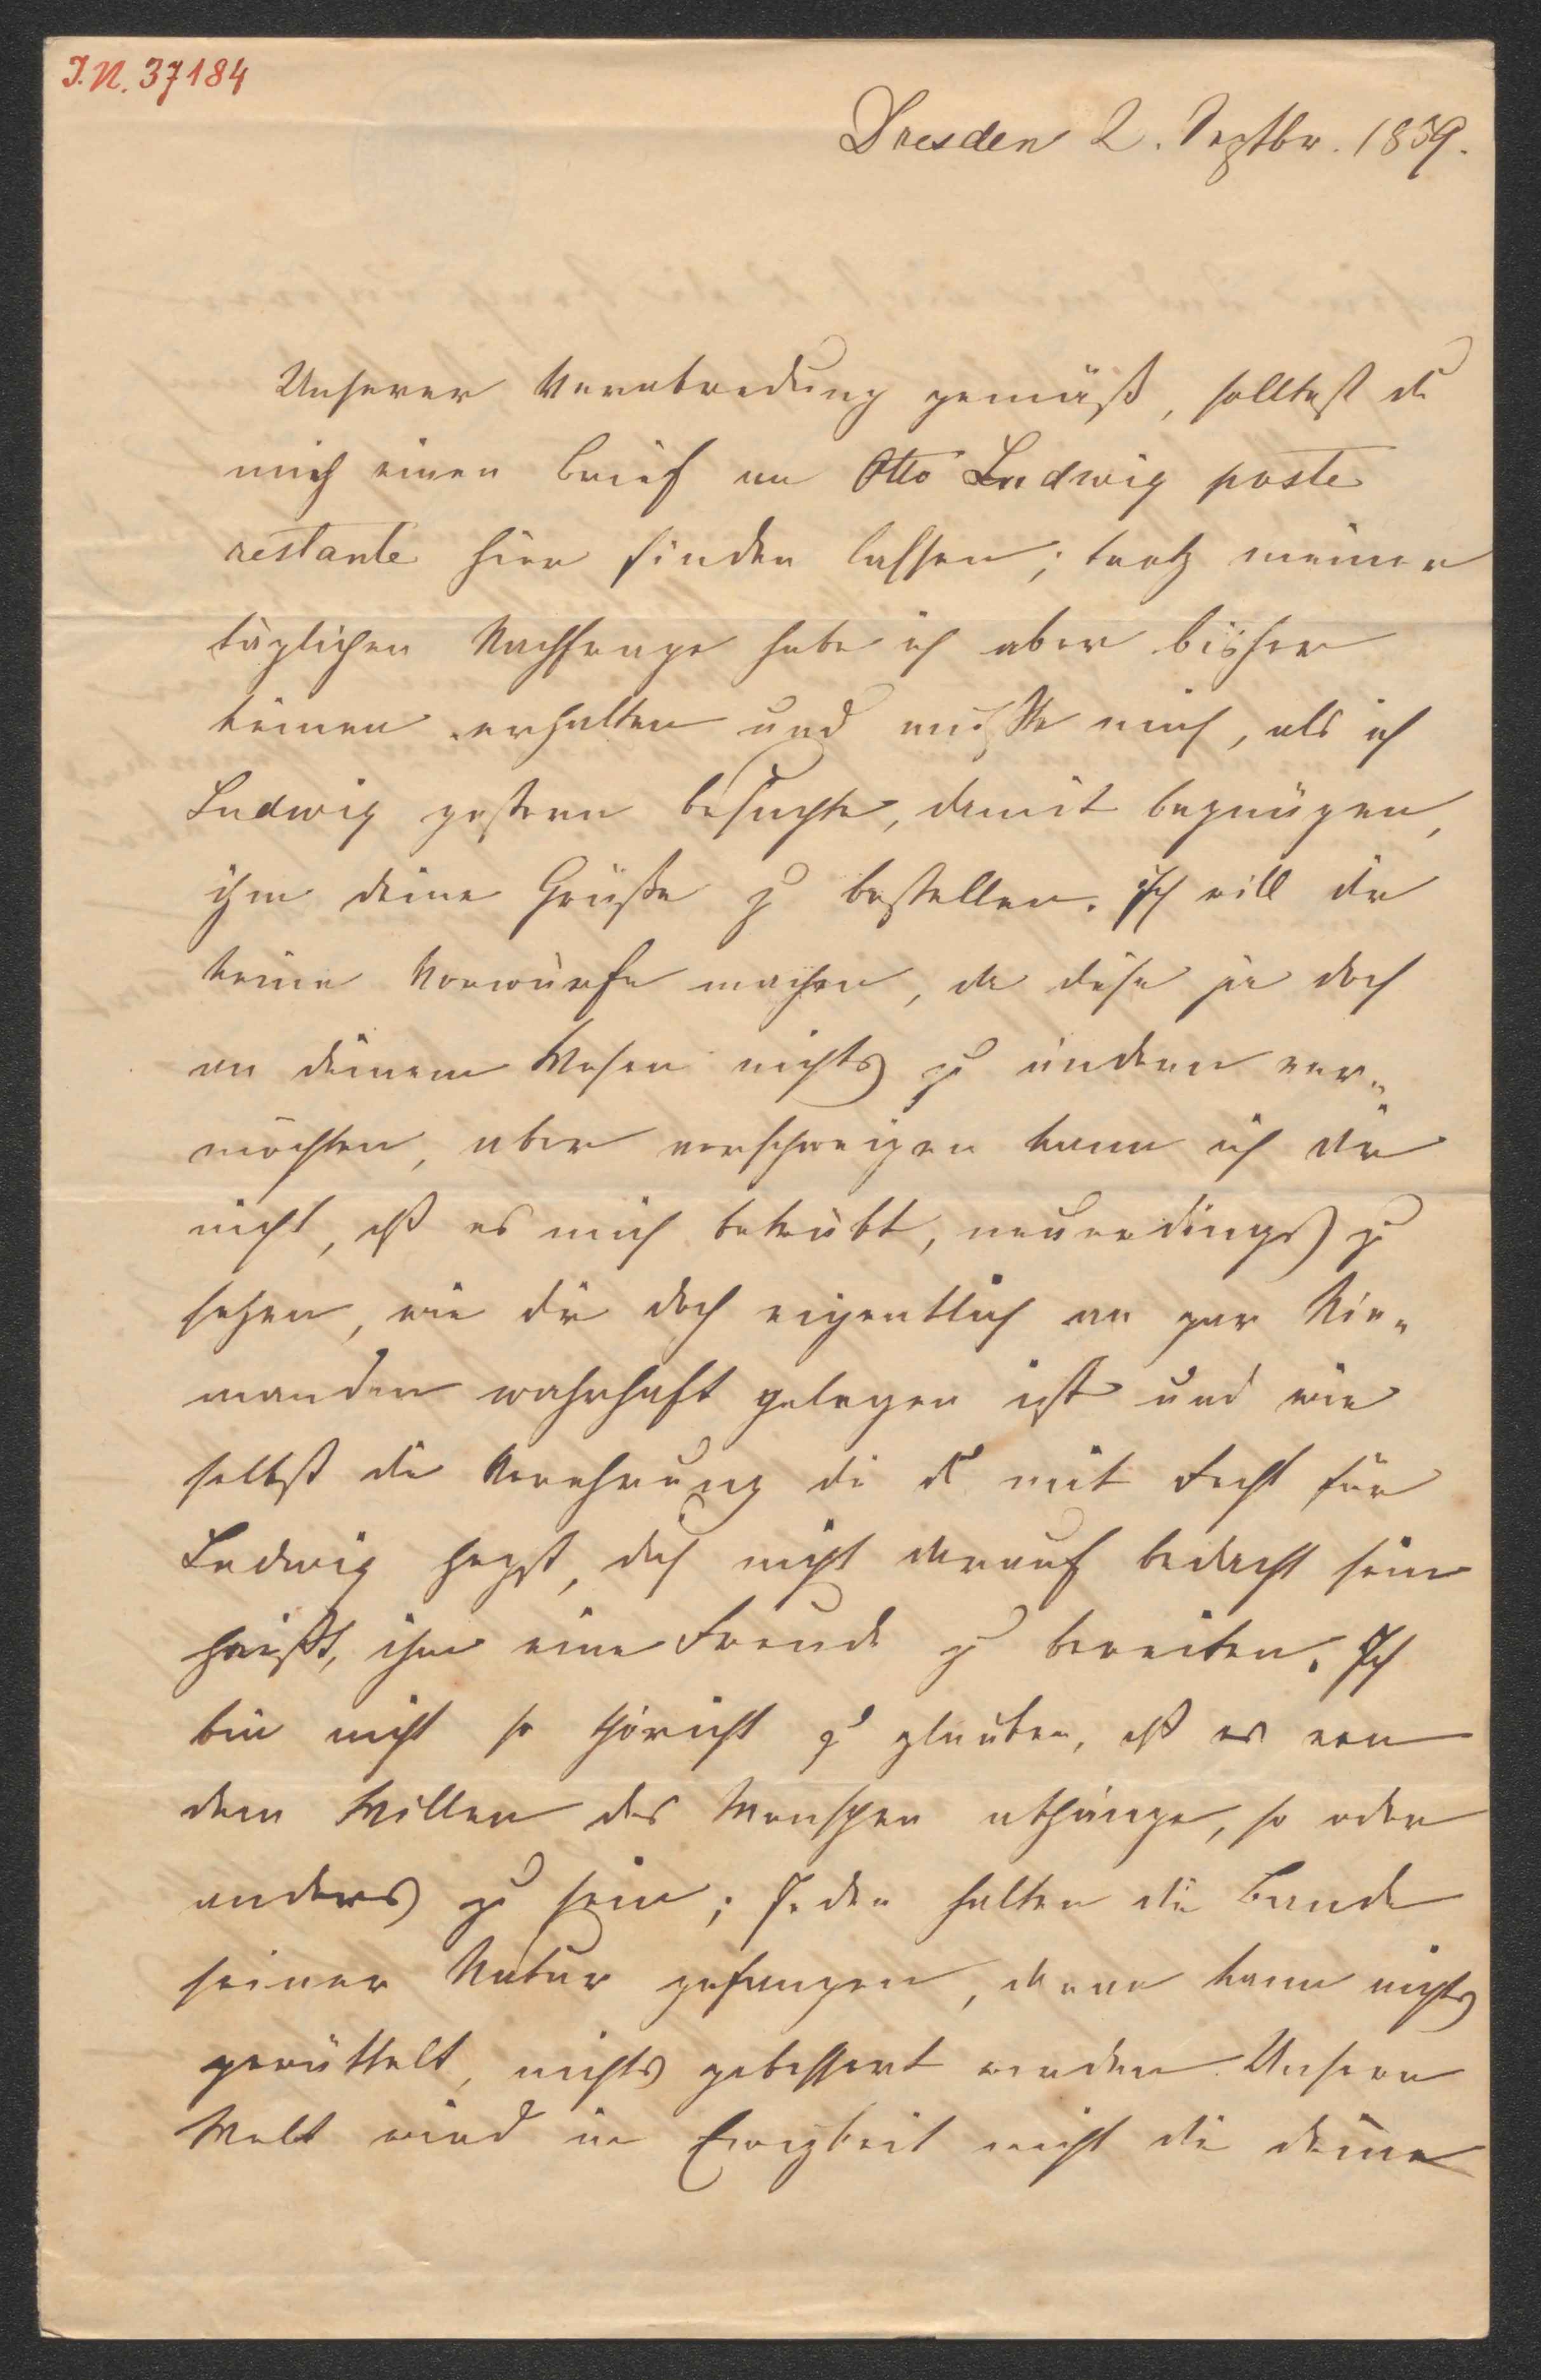 J.N. 37184
Dresden 2. Septbr. 1859.
Unserer Verabredung gemäß, solltest du
mich einen Brief an Otto Ludwig poste
restante hier finden lassen; trotz meiner
täglichen Nachfrage habe ich aber bisher
keinen erhalten und mußte mich, als ich
Ludwig gestern besuchte, damit begnügen,
ihm deine Grüße zu bestellen. Ich will dir
keine Vorwürfe machen, da diese ja doch
an deinem Wesen nichts zu ändern ver-
möchten, aber verschweigen kann ich dir
nicht, daß es mich betrübt, neuerdings zu
sehen, wie dir doch eigentlich an gar Nie-
manden wahrhaft gelegen ist und wie
selbst die Verehrung die du mit Recht für
Ludwig hegst, dich nicht darauf bedacht sein
heißt, ihm eine Freude zu bereiten. Ich
bin nicht so thöricht zu glauben, daß es von
dem Willen des Menschen abhänge, so oder
anders zu sein; Jeden halten die Bande
seiner Natur gefangen, daran kann nichts
gerüttelt, nichts gebessert werden. Unsere
Welt wird in Ewigkeit nicht die deine